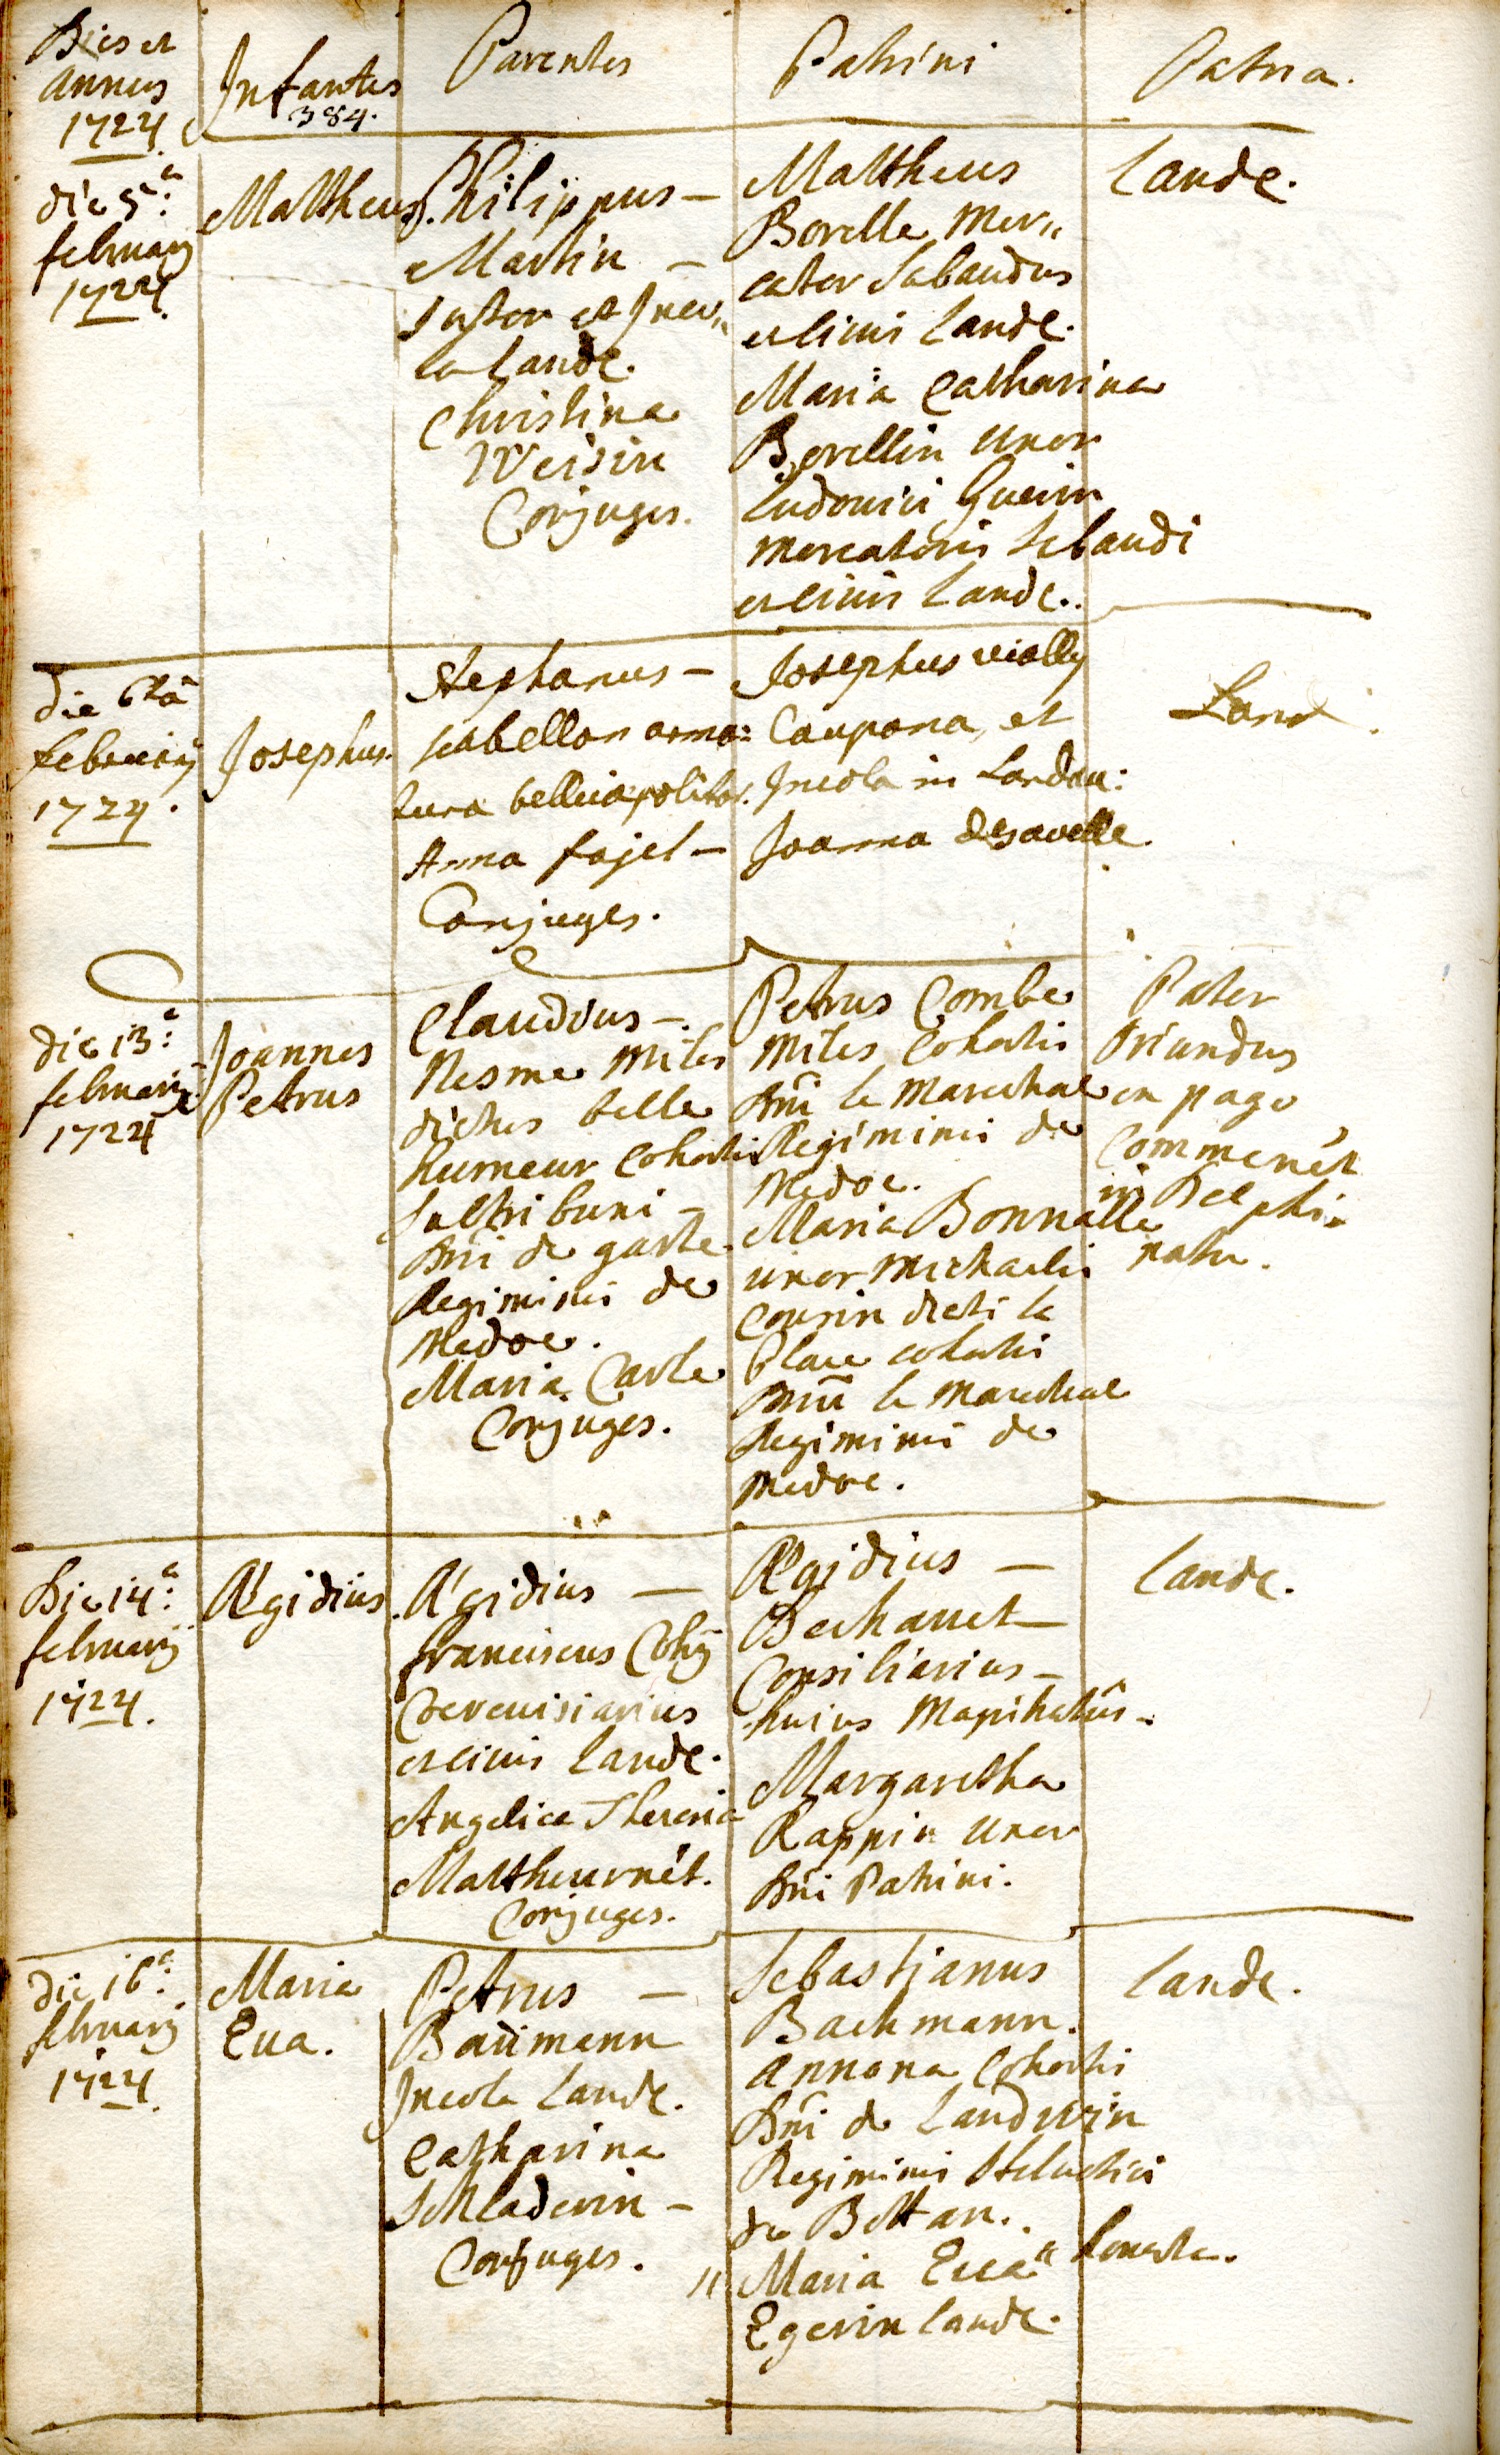 Dies et
Annus
1724
Infantes
384.
Parentes
Patrini
Patria.
die 5.a
februarij
1724.
Mattheus.
Philippus -
Martin -
sutor et Inco,,
la Lande.
Christina
Weisin
Conjuges.
Mattheus
Borelle Mer,,
cator Sabaudus
et civis Lande.
Maria Catharina
Borellin uxor
Ludovici Guerin
Mercatoris Sabaudi
et civis Lande.
Lande.
die 6ta
februarij
1724.
Josephus.
Stephanus -
sabellon arma=
tura bellica politor.
Anna fajel -
Conjuges.
Josephus vially
Caupona, et
Incola in Landau:
Joanna desavelle
Land.
die 13.a
februarij
1724
Joannes
Petrus
Claudius -
Nesme Miles
dictus belle
humeur Cohortis
Dni de
Regiminis de
Medoc.
Maria Carle
Conjuges.
Petrus Combe
Miles Cohortis
Dni le Marechal
Regiminis de
Medoc.
Maria Bonnalle
uxor Michaelis
Cousin dicti la
Place cohortis
Dni le Marechal
Regiminis de
Medoc.
Pater
Oriundus
ex pago
in Delphi-
natu.
Die 14.a
februarij
1724.
Ægidius.
Ægidius -
franciscus
Cerevisiarius
et civis Lande.
Angelica Theresia
Conjuges.
Ægidius -
Consiliarius -
huius Magistratûs -
Margaretha
Rappin uxor
Dni Patrini.
Lande.
die 16.a
februarij
1724.
Maria
Eva.
Petrus -
Baümann
Incola Lande.
Catharina
Schladerin -
Conjuges.
Sebastianus
Bachmann.
Annona Cohortis
Dni de Landwin
Regiminis Helvetici
de
,, Maria Eva ,, honesta.
Egerin Lande.
Lande.